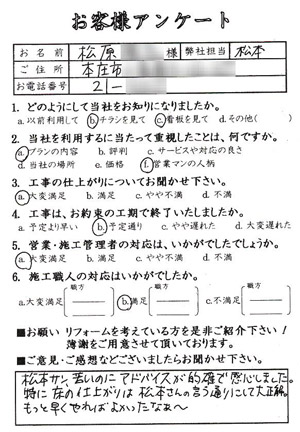 お客様アンケート
お名前 松原 様 弊社担当 松本
ご住所 本庄市
お電話番号 21-
1. どのようにして当社をお知りになりましたか。
a. 以前利用して b. チラシを見て c. 看板を見て d. その他( )
2. 当社を利用するに当たって重視したことは、何ですか。
a. プランの内容 b. 評判 c. サービスや対応の良さ
d. 当社の場所 e. 価格 f. 営業マンの人柄
3. 工事の仕上がりについてお聞かせ下さい。
a. 大変満足 b. 満足 c. やや不満 d. 不満
4. 工事は、お約束の工期で終了いたしましたか。
a. 予定より早い b. 予定通り c. やや遅れた d. 大変遅れた
5. 営業・施工管理者の対応は、いかがでしたでしょうか。
a. 大変満足 b. 満足 c. やや不満 d. 不満
6. 施工職人の対応はいかがでしたか。
a. 大変満足 [職方 ] b. 満足 [職方 ] c. 不満 [職方 ]
■お願い リフォームを考えている方を是非ご紹介下さい!
薄謝をご用意させて頂いております。
■ご意見・ご感想などございましたらお聞かせ下さい。
松本サン、若いのにアドバイスが的確で感心しました。
特に 床の仕上がりは 松本さんの言う通りにして大正解。
もっと早くやればよかったなぁ〜